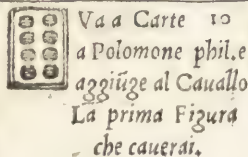 Va a Carte 10
a Polomone phil.e
aggiũge al Cauallo
La prima Figura
che cauerai.